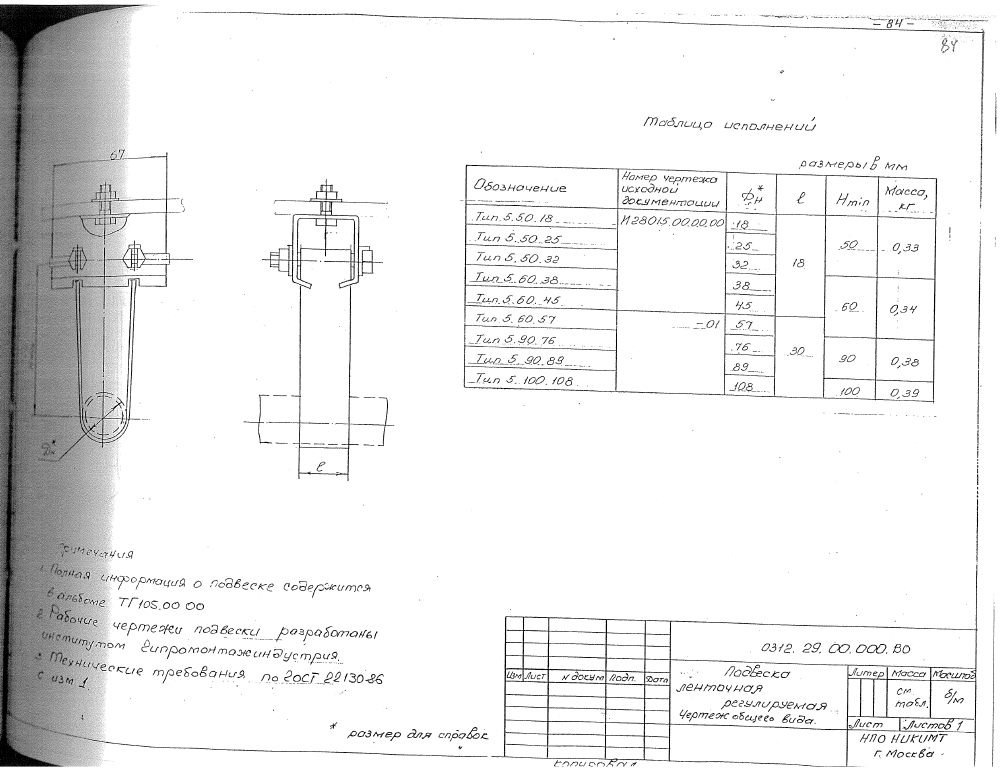 - 84 -
84
Таблица исполнений
размеры в мм
Обозначение
Номер чертежа
исходной
документации
Фн*
ℓ
Hmin
Масса,
кг
Тип 5.50.18
И28015.00.00.00
18
Тип 5.50.25
25
Тип 5.50.32
32
18
50
0,33
Тип 5.60.38
38
Тип 5.60.45
45
60
0,34
Тип 5.60.57
-01
57
Тип 5.90.76
76
30
Тип 5.90.89
89
90
0,38
Тип 5.100.108
108
100
0,39
67
Фн*
ℓ
Примечания
1. Полная информация о подвеске содержится
в альбоме ТГ105.00 00
2. Рабочие чертежи подвески разработаны
институтом Гипромонтажиндустрия
3. Технические требования по ГОСТ 22130-86
с изм 1.
* размер для справок
0312. 29. 00. 000. ВО
Изм Лист N докум Подп. Дата
Подвеска
ленточная
регулируемая
Чертеж общего вида.
Литер Масса Масштаб
см
табл.
б/м
Лист Листов 1
НПО НИКИМТ
г. Москва
Копировал